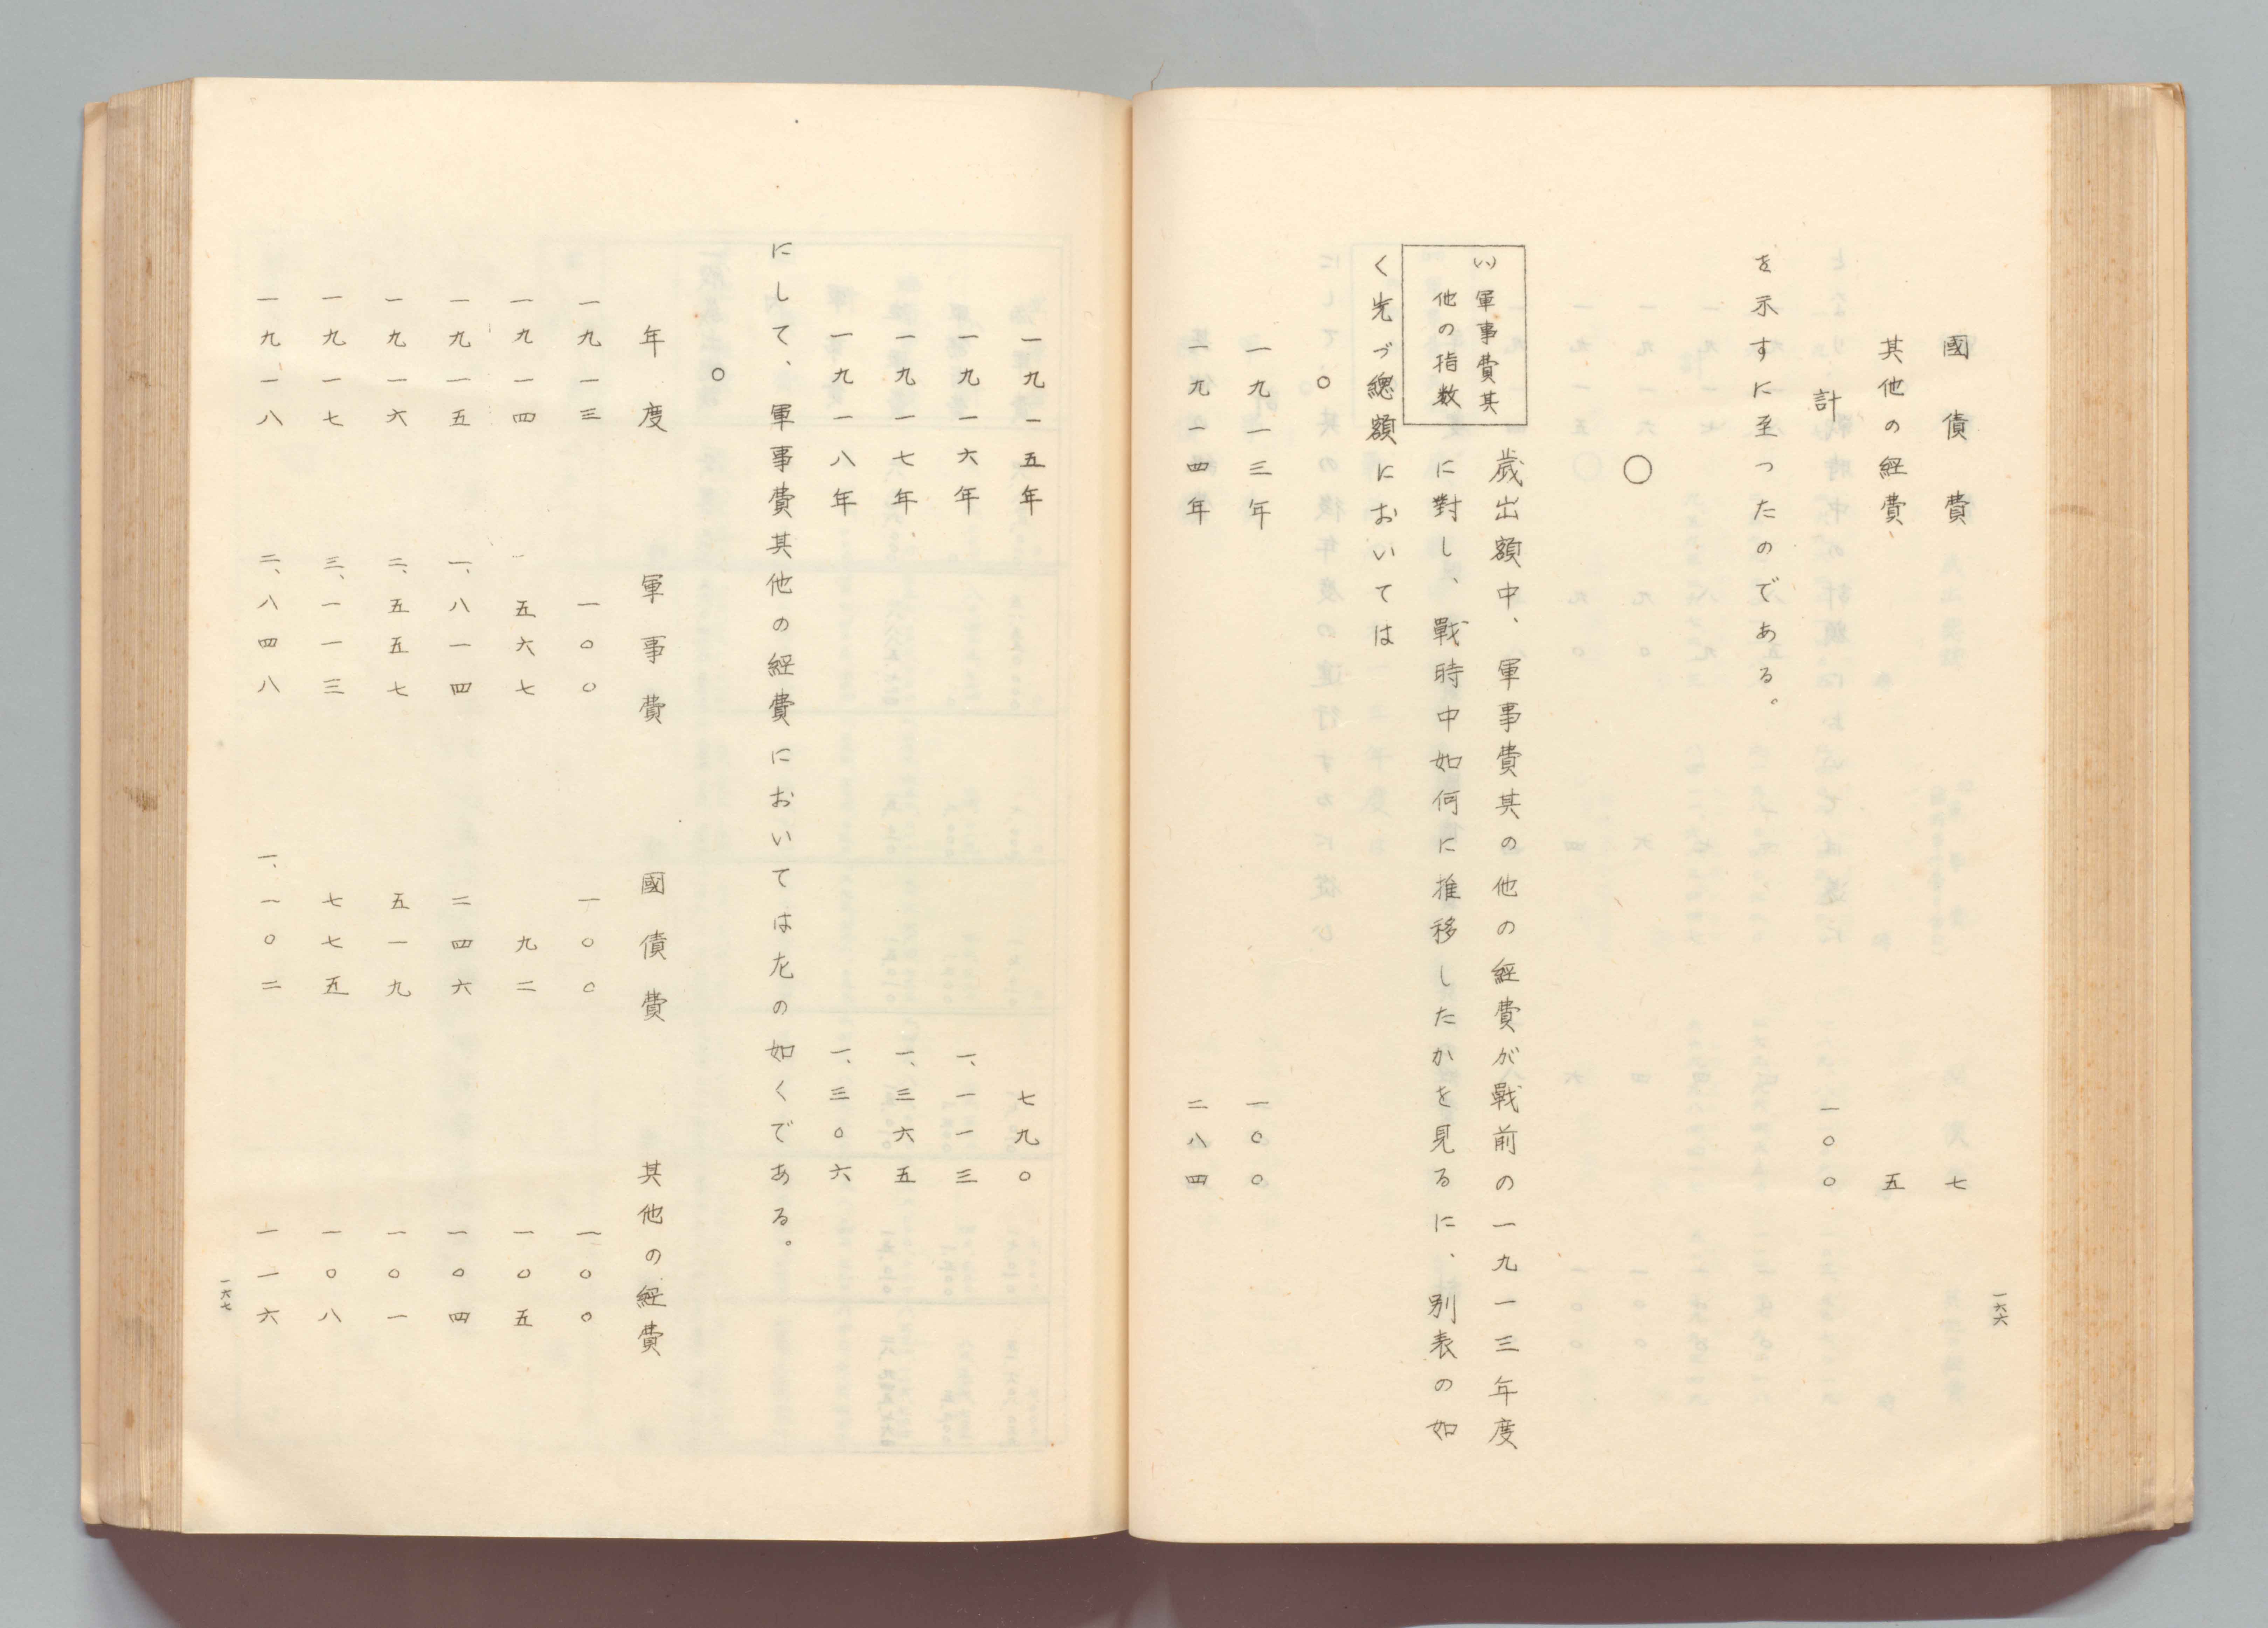 國債費　七
其他の経費　五
計　一〇〇
を示すに至ったのである。
〇
(い) 軍事費其
他の指数
歳出額中、軍事費其の他の経費が戰前の一九一三年度
に對し、戰時中如何に推移したかを見るに、別表の如
く先づ總額においては
〇
一九一三年　一〇〇
一九一四年　二八四
一六六
一九一五年　七九〇
一九一六年　一、一一三
一九一七年　一、三六五
一九一八年　一、三〇六
にして、軍事費其他の経費においては左の如くである。
〇
年度　軍事費　國債費　其他の経費
一九一三　一〇〇　一〇〇　一〇〇
一九一四　五六七　九二　一〇五
一九一五　一、八一四　二四六　一〇四
一九一六　二、五五七　五一九　一〇一
一九一七　三、一一三　七七五　一〇八
一九一八　二、八四八　一、一〇二　一一六
一六七